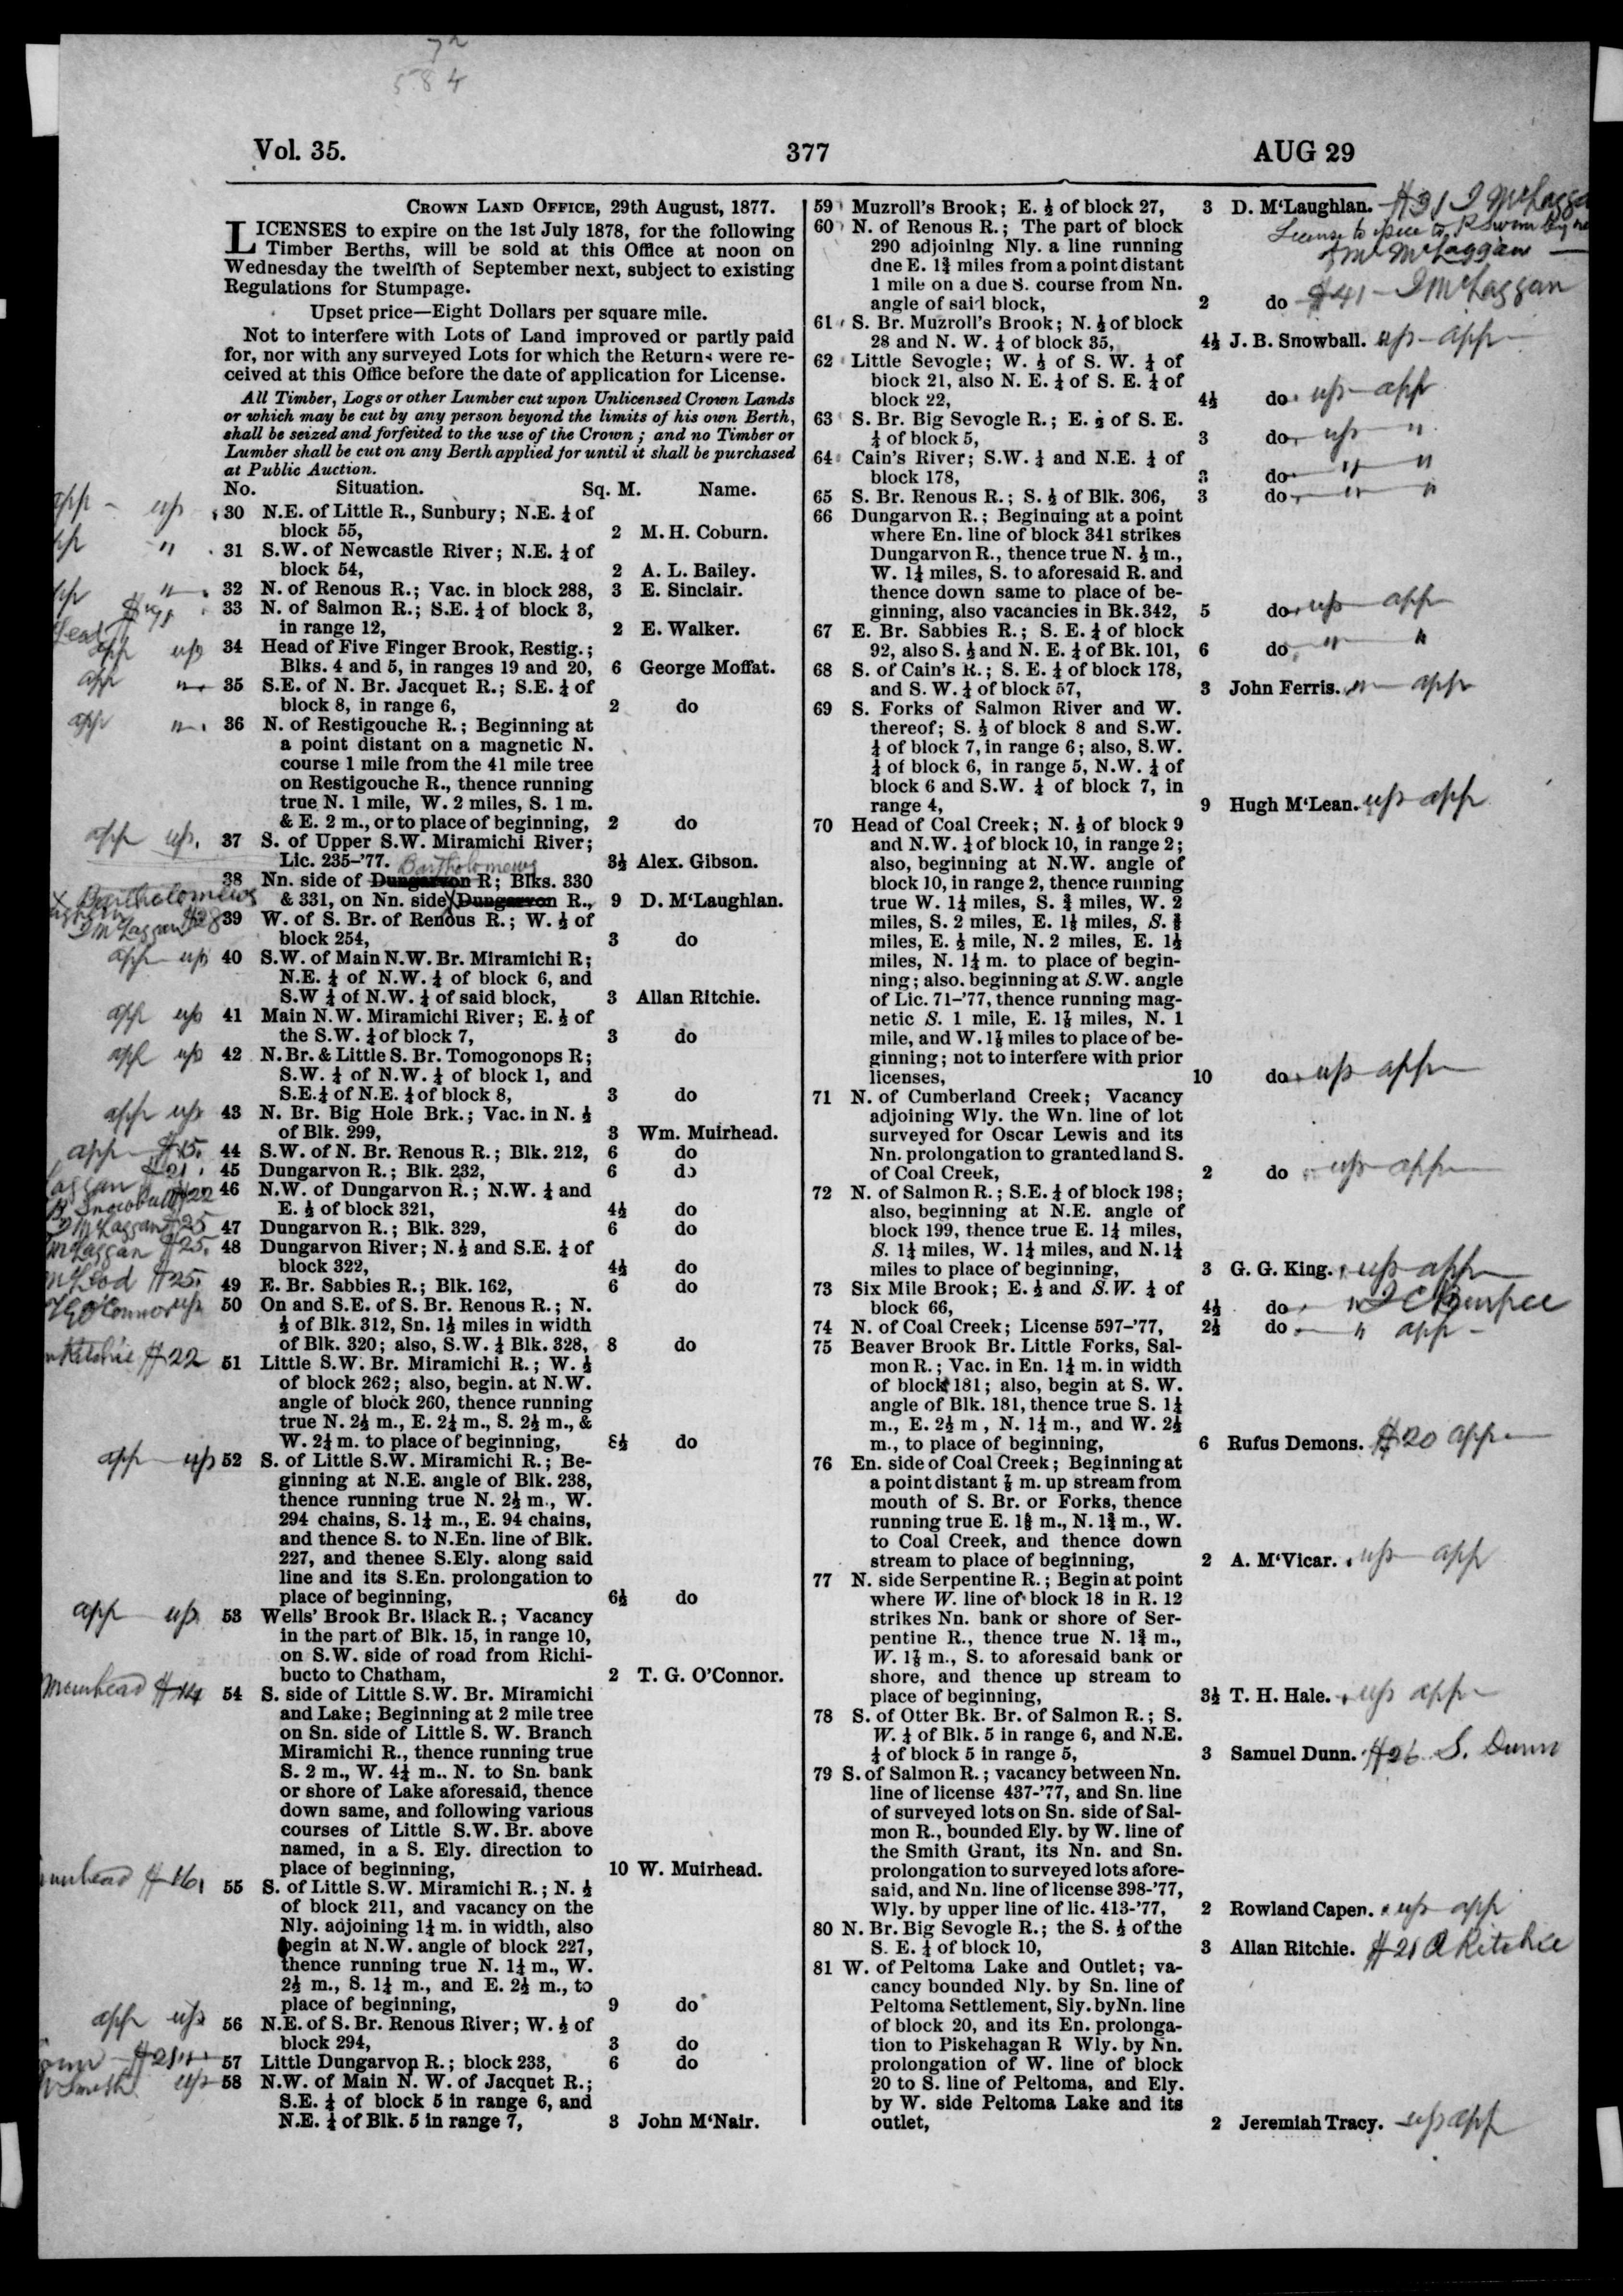 584
Vol. 35.
377
AUG 29
CROWN LAND OFFICE, 29th August, 1877.
LICENSES to expire on the 1st July 1878, for the following
Timber Berths, will be sold at this Office at noon on
Wednesday the twelfth of September next, subject to existing
Regulations for Stumpage.
Upset price—Eight Dollars per square mile.
Not to interfere with Lots of Land improved or partly paid
for, nor with any surveyed Lots for which the Returns were re-
ceived at this Office before the date of application for License.
All Timber, Logs or other Lumber cut upon Unlicensed Crown Lands
or which may be cut by any person beyond the limits of his own Berth,
shall be seized and forfeited to the use of the Crown; and no Timber or
Lumber shall be cut on any Berth applied for until it shall be purchased
at Public Auction.
No. Situation. Sq. M. Name.
app – up 30 N.E. of Little R., Sunbury; N.E. ¼ of
block 55, 2 M. H. Coburn.
" 31 S.W. of Newcastle River; N.E. ¼ of
block 54, 2 A. L. Bailey.
" 32 N. of Renous R.; Vac. in block 288, 3 E. Sinclair.
33 N. of Salmon R.; S.E. ¼ of block 3,
in range 12, 2 E. Walker.
app up 34 Head of Five Finger Brook, Restig.;
Blks. 4 and 5, in ranges 19 and 20, 6 George Moffat.
app " 35 S.E. of N. Br. Jacquet R.; S.E. ¼ of
block 8, in range 6, 2 do
app " 36 N. of Restigouche R.; Beginning at
a point distant on a magnetic N.
course 1 mile from the 41 mile tree
on Restigouche R., thence running
true N. 1 mile, W. 2 miles, S. 1 m.
& E. 2 m., or to place of beginning, 2 do
app up. 37 S. of Upper S.W. Miramichi River;
Lic. 235-'77. 3½ Alex. Gibson.
Bartholomews
38 Nn. side of Dungarvon R; Blks. 330
X Bartholomews & 331, on Nn. side Dungarvon R., 9 D. M'Laughlan.
McLaggan $28 39 W. of S. Br. of Renous R.; W. ½ of
block 254, 3 do
app up 40 S.W. of Main N.W. Br. Miramichi R;
N.E. ¼ of N.W. ¼ of block 6, and
S.W ¼ of N.W. ¼ of said block, 3 Allan Ritchie.
app up 41 Main N.W. Miramichi River; E. ½ of
the S.W. ¼ of block 7, 3 do
app up 42 N. Br. & Little S. Br. Tomogonops R;
S.W. ¼ of N.W. ¼ of block 1, and
S.E. ¼ of N.E. ¼ of block 8, 3 do
app up 43 N. Br. Big Hole Brk.; Vac. in N. ½
of Blk. 299, 3 Wm. Muirhead.
app $15. 44 S.W. of N. Br. Renous R.; Blk. 212, 6 do
$21. 45 Dungarvon R.; Blk. 232, 6 do
Snowball $22 46 N.W. of Dungarvon R.; N.W. ¼ and
E. ½ of block 321, 4½ do
McLaggan $25 47 Dungarvon R.; Blk. 329, 6 do
McLaggan $25. 48 Dungarvon River; N. ½ and S.E. ¼ of
block 322, 4½ do
McLeod $25. 49 E. Br. Sabbies R.; Blk. 162, 6 do
O'Connor up 50 On and S.E. of S. Br. Renous R.; N.
½ of Blk. 312, Sn. 1½ miles in width
of Blk. 320; also, S.W. ¼ Blk. 328, 8 do
Ritchie $22 51 Little S.W. Br. Miramichi R.; W. ½
of block 262; also, begin. at N.W.
angle of block 260, thence running
true N. 2½ m., E. 2¼ m., S. 2½ m., &
W. 2¼ m. to place of beginning, 8½ do
app up 52 S. of Little S.W. Miramichi R.; Be-
ginning at N.E. angle of Blk. 238,
thence running true N. 2½ m., W.
294 chains, S. 1¼ m., E. 94 chains,
and thence S. to N.En. line of Blk.
227, and thenee S.Ely. along said
line and its S.En. prolongation to
place of beginning, 6½ do
app up. 53 Wells' Brook Br. Black R.; Vacancy
in the part of Blk. 15, in range 10,
on S.W. side of road from Richi-
bucto to Chatham, 2 T. G. O'Connor.
Muirhead $14 54 S. side of Little S.W. Br. Miramichi
and Lake; Beginning at 2 mile tree
on Sn. side of Little S. W. Branch
Miramichi R., thence running true
S. 2 m., W. 4¼ m.. N. to Sn. bank
or shore of Lake aforesaid, thence
down same, and following various
courses of Little S.W. Br. above
named, in a S. Ely. direction to
place of beginning, 10 W. Muirhead.
$16 55 S. of Little S.W. Miramichi R.; N. ½
of block 211, and vacancy on the
Nly. adjoining 1¼ m. in width, also
begin at N.W. angle of block 227,
thence running true N. 1¼ m., W.
2½ m., S. 1¼ m., and E. 2½ m., to
place of beginning, 9 do
app up 56 N.E. of S. Br. Renous River; W. ½ of
block 294, 3 do
57 Little Dungarvon R.; block 233, 6 do
Smith up 58 N.W. of Main N. W. of Jacquet R.;
S.E. ¼ of block 5 in range 6, and
N.E. ¼ of Blk. 5 in range 7, 3 John M'Nair.
59 Muzroll's Brook; E. ½ of block 27, 3 D. M'Laughlan. $31 J McLagga
License to
McLaggan
60 N. of Renous R.; The part of block
290 adjoining Nly. a line running
dne E. 1¾ miles from a point distant
1 mile on a due S. course from Nn.
angle of said block, 2 do $41 – J McLaggan
61 S. Br. Muzroll's Brook; N. ½ of block
28 and N. W. ¼ of block 35, 4½ J. B. Snowball. up – app
62 Little Sevogle; W. ½ of S. W. ¼ of
block 21, also N. E. ¼ of S. E. ¼ of
block 22, 4½ do up – app
63 S. Br. Big Sevogle R.; E. ½ of S. E.
¼ of block 5, 3 do up "
64 Cain's River; S.W. ¼ and N.E. ¼ of
block 178, 3 do " "
65 S. Br. Renous R.; S. ½ of Blk. 306, 3 do " "
66 Dungarvon R.; Beginning at a point
where En. line of block 341 strikes
Dungarvon R., thence true N. ½ m.,
W. 1¼ miles, S. to aforesaid R. and
thence down same to place of be-
ginning, also vacancies in Bk. 342, 5 do up app
67 E. Br. Sabbies R.; S. E. ¼ of block
92, also S. ½ and N. E. ¼ of Bk. 101, 6 do " "
68 S. of Cain's R.; S. E. ¼ of block 178,
and S. W. ¼ of block 57, 3 John Ferris. " app
69 S. Forks of Salmon River and W.
thereof; S. ½ of block 8 and S.W.
¼ of block 7, in range 6; also, S.W.
¼ of block 6, in range 5, N.W. ¼ of
block 6 and S.W. ¼ of block 7, in
range 4, 9 Hugh M'Lean. up app
70 Head of Coal Creek; N. ½ of block 9
and N.W. ¼ of block 10, in range 2;
also, beginning at N.W. angle of
block 10, in range 2, thence running
true W. 1¼ miles, S. ¾ miles, W. 2
miles, S. 2 miles, E. 1⅛ miles, S. ⅜
miles, E. ½ mile, N. 2 miles, E. 1½
miles, N. 1¼ m. to place of begin-
ning; also. beginning at S.W. angle
of Lic. 71-'77, thence running mag-
netic S. 1 mile, E. 1⅞ miles, N. 1
mile, and W. 1⅞ miles to place of be-
ginning; not to interfere with prior
licenses, 10 do up app
71 N. of Cumberland Creek; Vacancy
adjoining Wly. the Wn. line of lot
surveyed for Oscar Lewis and its
Nn. prolongation to granted land S.
of Coal Creek, 2 do up app
72 N. of Salmon R.; S.E. ¼ of block 198;
also, beginning at N.E. angle of
block 199, thence true E. 1¼ miles,
S. 1¼ miles, W. 1¼ miles, and N. 1¼
miles to place of beginning, 3 G. G. King. up app
73 Six Mile Brook; E. ½ and S.W. ¼ of
block 66, 4½ do " J C Burpee
74 N. of Coal Creek; License 597-'77, 2½ do " app
75 Beaver Brook Br. Little Forks, Sal-
mon R.; Vac. in En. 1¼ m. in width
of block 181; also, begin at S. W.
angle of Blk. 181, thence true S. 1¼
m., E. 2½ m , N. 1¼ m., and W. 2½
m., to place of beginning, 6 Rufus Demons. $20 app
76 En. side of Coal Creek; Beginning at
a point distant ⅞ m. up stream from
mouth of S. Br. or Forks, thence
running true E. 1⅜ m., N. 1¾ m., W.
to Coal Creek, and thence down
stream to place of beginning, 2 A. M'Vicar. up app
77 N. side Serpentine R.; Begin at point
where W. line of block 18 in R. 12
strikes Nn. bank or shore of Ser-
pentine R., thence true N. 1¾ m.,
W. 1⅞ m., S. to aforesaid bank or
shore, and thence up stream to
place of beginning, 3½ T. H. Hale. up app
78 S. of Otter Bk. Br. of Salmon R.; S.
W. ¼ of Blk. 5 in range 6, and N.E.
¼ of block 5 in range 5, 3 Samuel Dunn. $26 S. Dunn
79 S. of Salmon R.; vacancy between Nn.
line of license 437-'77, and Sn. line
of surveyed lots on Sn. side of Sal-
mon R., bounded Ely. by W. line of
the Smith Grant, its Nn. and Sn.
prolongation to surveyed lots afore-
said, and Nn. line of license 398-'77,
Wly. by upper line of lic. 413-'77, 2 Rowland Capen. up app
80 N. Br. Big Sevogle R.; the S. ½ of the
S. E. ¼ of block 10, 3 Allan Ritchie. $21 A Ritchie
81 W. of Peltoma Lake and Outlet; va-
cancy bounded Nly. by Sn. line of
Peltoma Settlement, Sly. byNn. line
of block 20, and its En. prolonga-
tion to Piskehagan R Wly. by Nn.
prolongation of W. line of block
20 to S. line of Peltoma, and Ely.
by W. side Peltoma Lake and its
outlet, 2 Jeremiah Tracy. up app